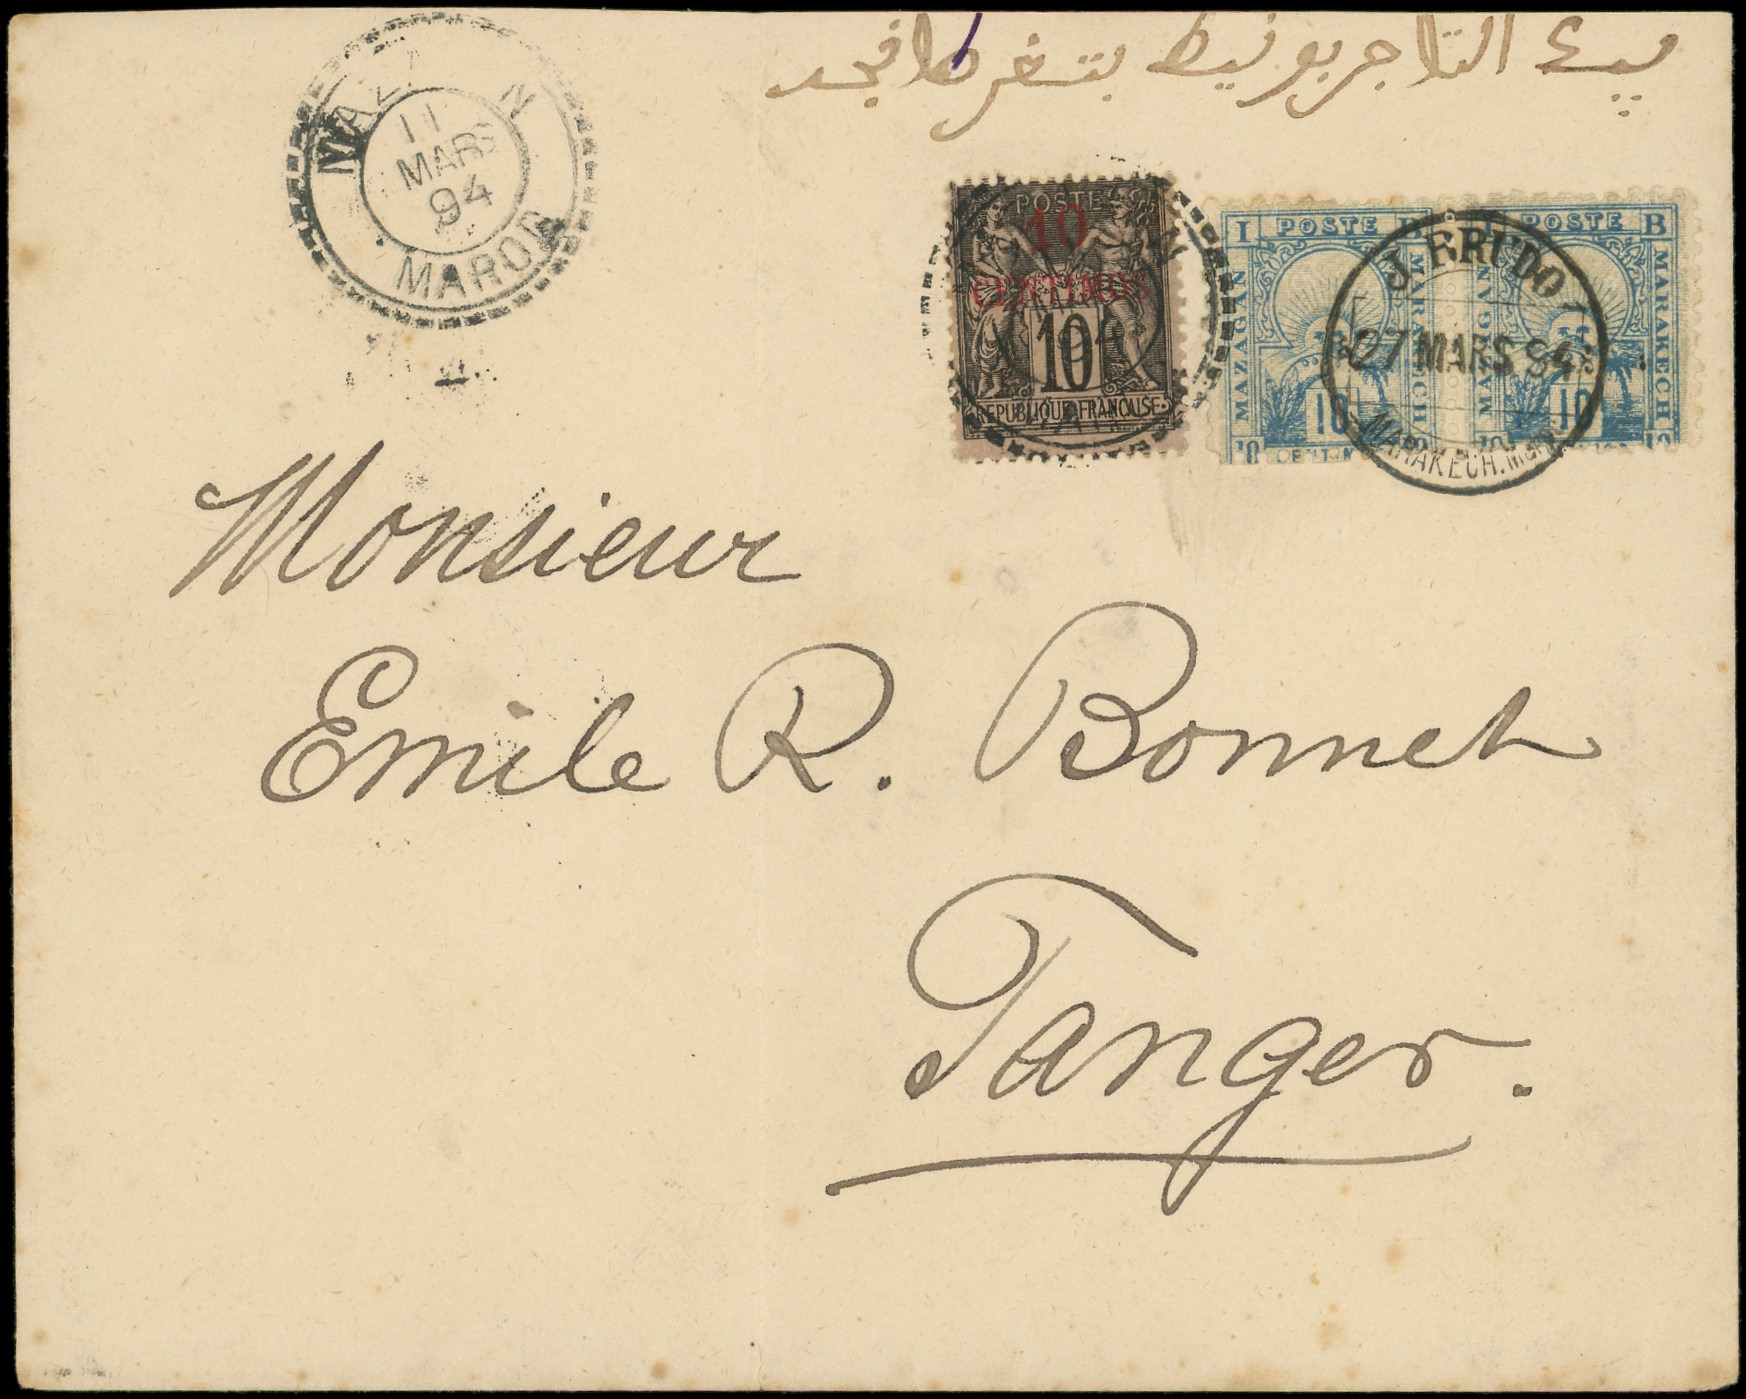 التاجر بونيط
MAZ N
11
MARS
94
MAROC
POSTE
10
CENTIMOS
10
REPUBLIQUE FRANCAISE
I POSTE B
MAZAGAN
MARAKECH
10
10 CENTIMOS
POSTE B
MAZAGAN
MARAKECH
10
J. BRUDO
27 MARS 94
MARAKECH.
Monsieur
Emile R. Bonnet
Tanger.